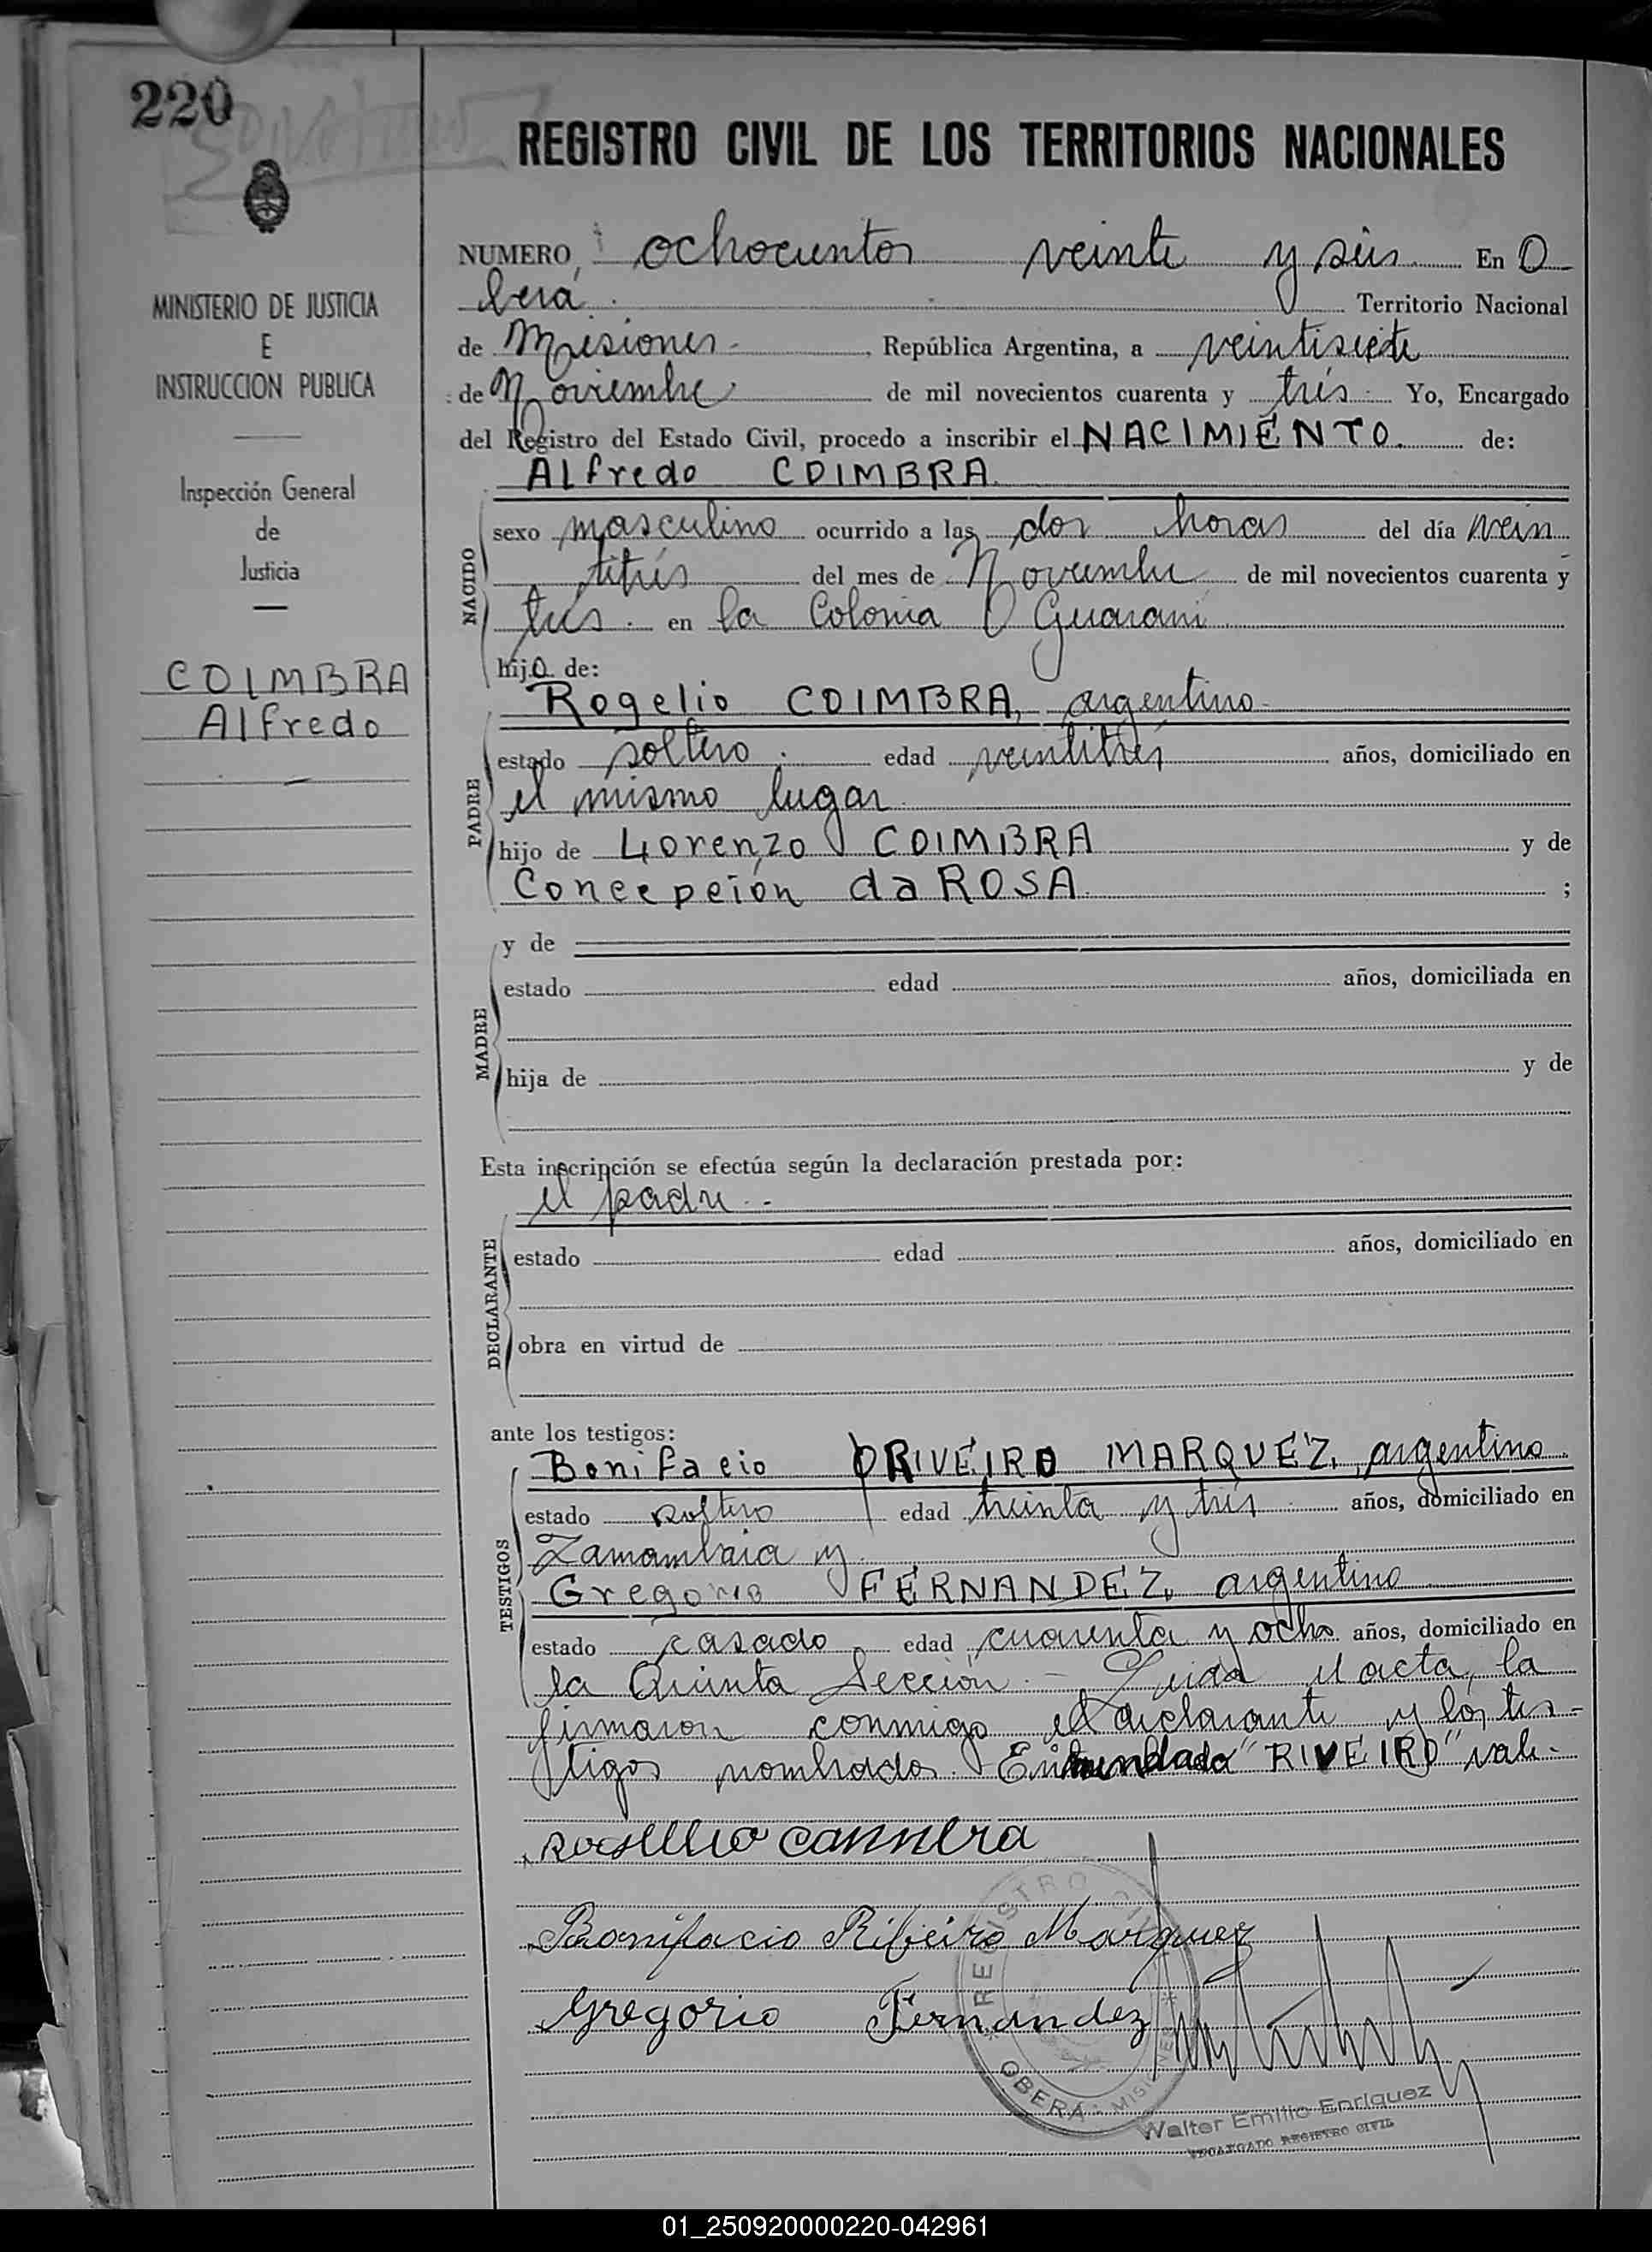 220
REGISTRO CIVIL DE LOS TERRITORIOS NACIONALES
MINISTERIO DE JUSTICIA
E
INSTRUCCION PUBLICA
Inspección General
de
Justicia
COIMBRA
Alfredo
NUMERO ochocientos veinte y seis En O
berá Territorio Nacional
de Misiones República Argentina, a veintisiete
de Noviembre de mil novecientos cuarenta y tres Yo, Encargado
del Registro del Estado Civil, procedo a inscribir el NACIMIENTO. de:
Alfredo COIMBRA
NACIDO
sexo masculino ocurrido a las dos horas del día vein
titrés del mes de Noviembre de mil novecientos cuarenta y
tres. en la Colonia Guaraní
hijo de:
Rogelio COIMBRA, argentino
PADRE
estado soltero. edad veintitrés años, domiciliado en
el mismo lugar
hijo de Lorenzo COIMBRA y de
Concepción da ROSA ;
MADRE
y de
estado edad años, domiciliada en
hija de y de
Esta inscripción se efectúa según la declaración prestada por:
el padre.-
DECLARANTE
estado edad años, domiciliado en
obra en virtud de
ante los testigos:
TESTIGOS
Bonifacio RIVEIRO MARQUEZ, argentino
estado soltero edad treinta y tres años, domiciliado en
Zamambaia y
Gregorio FERNANDEZ, argentino
estado casado edad cuarenta y ocho años, domiciliado en
la Quinta Sección.- Leida el acta, la
firmaron conmigo el declarante y los tes-
tigos nombrados. Enmendado "RIVEIRO" vale.
Bonifacio Ribeiro Marquez
Gregorio Fernandez
REGISTRO
OBERÁ
Walter Emilio Enriquez
ENCARGADO REGISTRO CIVIL
01_250920000220-042961